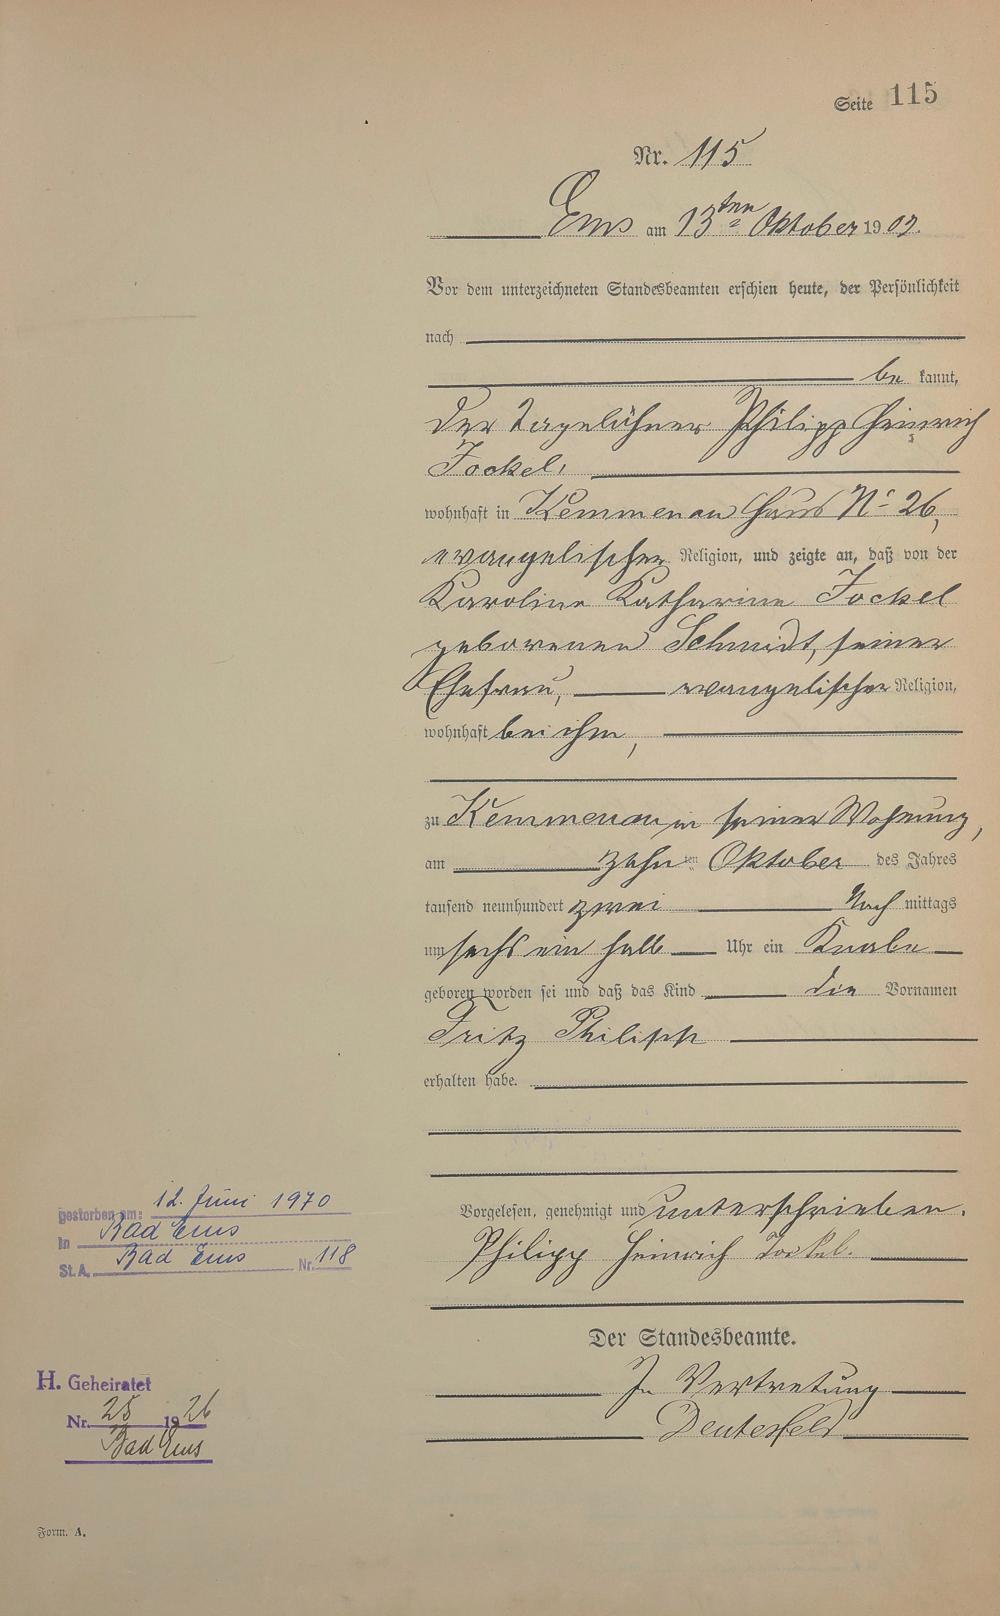 Seite 115
Nr. 115
Ems am 13ten Oktober 1902.
Vor dem unterzeichneten Standesbeamten erschien heute, der Persönlichkeit
nach
be kannt,
der Tagelöhner Philipp Heinrich
Jockel,
wohnhaft in Kemmenau Haus No 26,
evangelischer Religion, und zeigte an, daß von der
Karoline Katharine Jockel
geborenen Schmidt, seiner
Ehefrau, evangelischer Religion,
wohnhaft bei ihm,
zu Kemmenau in seiner Wohnung,
am zehnten Oktober des Jahres
tausend neunhundert zwei Nach mittags
um sechs ein halb Uhr ein Knabe
geboren worden sei und daß das Kind die Vornamen
Fritz Philipp
erhalten habe.
Vorgelesen, genehmigt und unterschrieben.
Philipp Heinrich Jockel.
Der Standesbeamte.
In Vertretung
Deutesfeld
gestorben am: 12. Juni 1970
in Bad Ems
St.A. Bad Ems Nr. 118
H. Geheiratet
Nr. 25 1926
Bad Ems
Form. A.